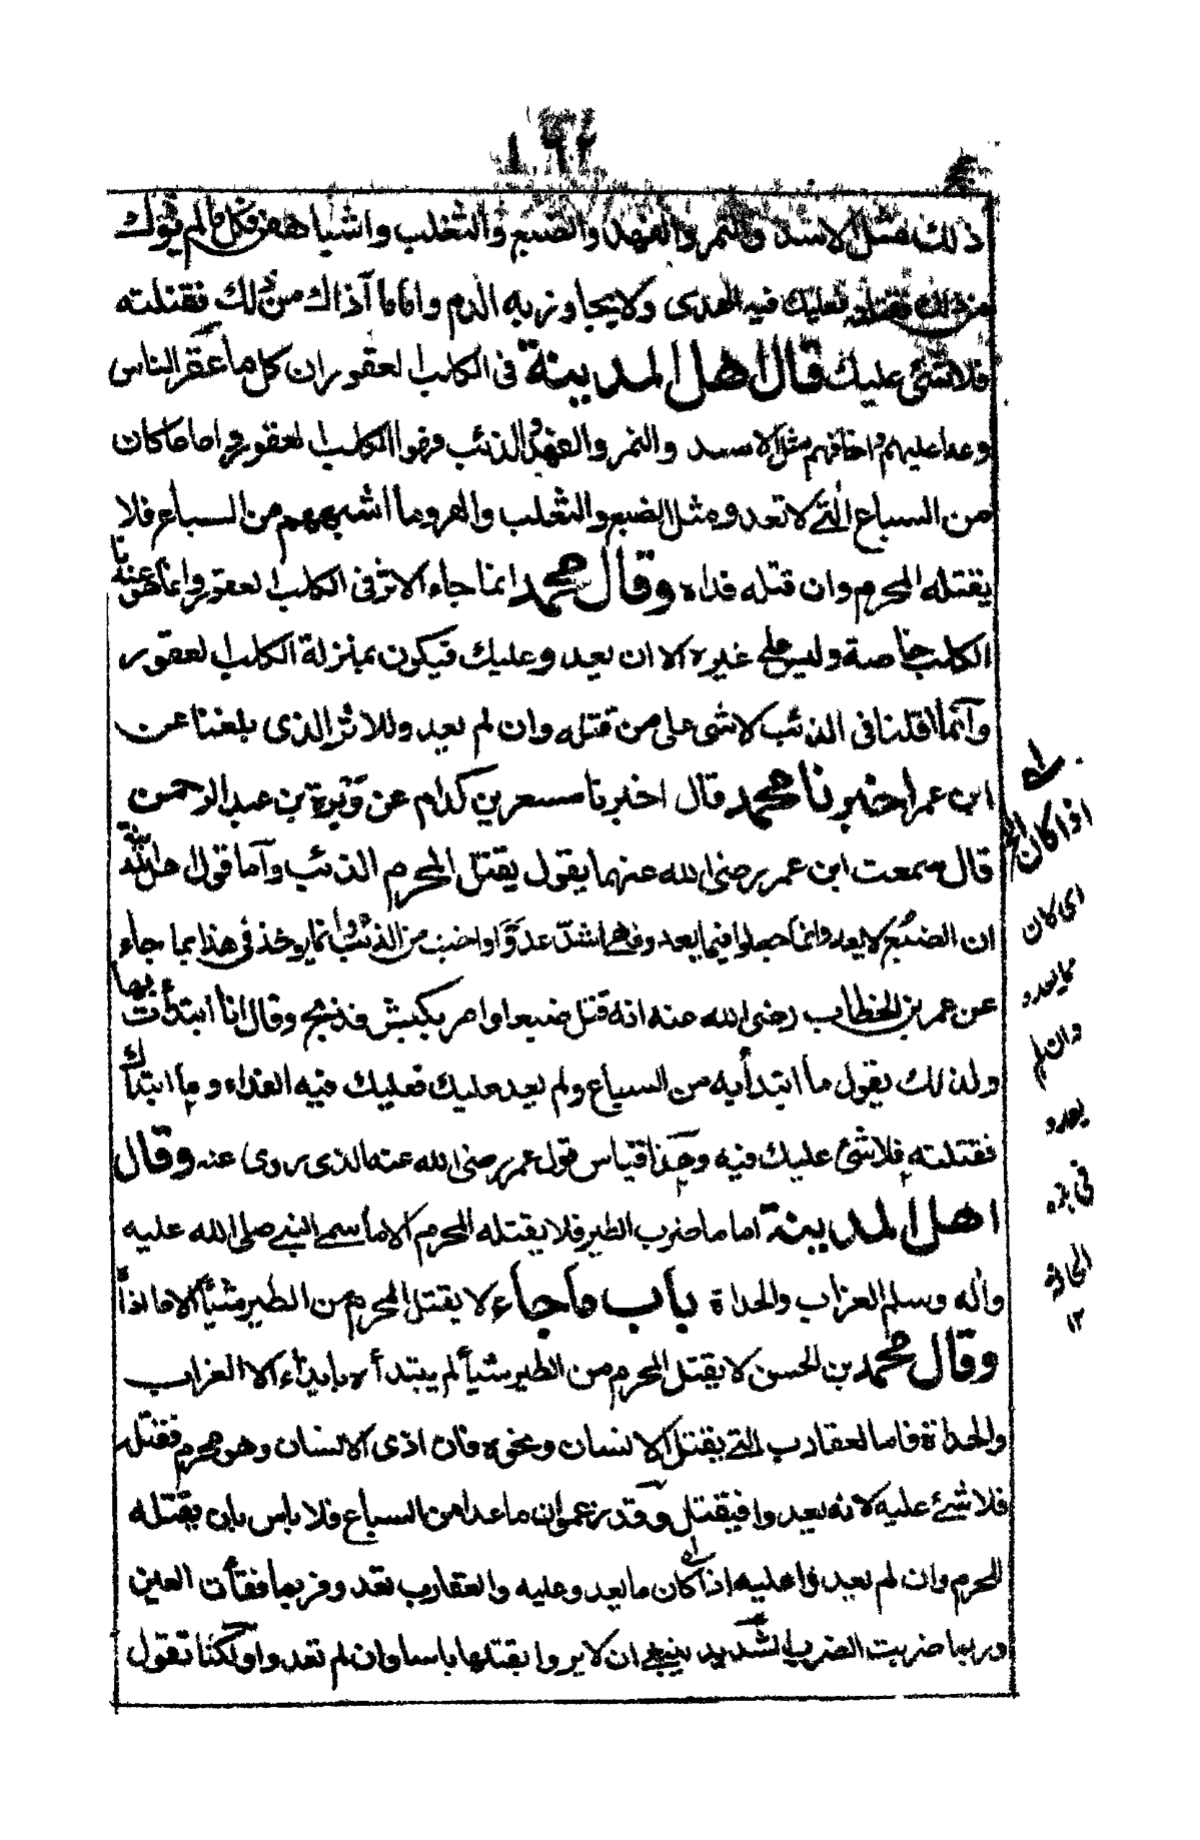 ١٦٢
ذلك مثل الاسد والنمر والفهد والضبع والثعلب واشباههن فكل ما لم يؤذك
من ذلك فقتلته فعليك فيه الهدى ولا يجاوز به الدم واما ما آذاك من ذلك فقتلته
فلا شئ عليك قال اهل المدينة فى الكلب العقور ان كل ما عقر الناس
وعدا عليهم واخافهم مثل الاسد والنمر والفهد والذئب فهو الكلب العقور واما ما كان
من السباع التى لا تعدو مثل الضبع والثعلب والهر وما اشبههم من السباع فلا
يقتله المحرم وان قتله فداه وقال محمد انما جاء الاثر فى الكلب العقور وانما هو عندنا
الكلب خاصة وليس على غيره الا ان يعدو عليك فيكون بمنزلة الكلب العقور
وانما قلنا فى الذئب لا شى على من قتله وان لم يعد وللاثر الذى بلغنا عن
ابن عمر اخبرنا محمد قال اخبرنا مسعر بن كدام عن وبرة بن عبد الرحمن
قال سمعت ابن عمر رضى الله عنهما يقول يقتل المحرم الذئب وآما قول اهل المدينة
ان الضبع لا يعدو وانما جعلوا فيما يعدو فهما اشد عدوا واخبث من الذئب وانما يوخذ فى هذا بما جاء
عن عمر بن الخطاب رضى الله عنه انه قتل ضبعا وامر بكبش فذبح وقال انا ابتدأت بها
ولذلك يقول ما ابتدأ به من السباع ولم يعد عليك فعليك فيه الفداء وما ابتدأك
فقتلته فلا شئ عليك فيه وهذا قياس قول عمر رضى الله عنه الذى روى عنه وقال
اهل المدينة اما ما ضرب الطير فلا يقتله المحرم الا ما سمى النبى صلى الله عليه
واله وسلم الغراب والحداة باب ما جاء لا يقتل المحرم من الطير شيأ الا ما اذاه
وقال محمد بن الحسن لا يقتل المحرم من الطير شيأ لم يبتدأه بايذاء الا الغراب
والحداة فاما العقارب التى يقتل الانسان ونحوه فان اذى الانسان وهو محرم فقتله
فلا شئ عليه لانه يعدوا فيقتل وقد زعموا انه ما عدا من السباع فلا باس بان يقتله
المحرم وان لم يعدوا عليه اذا كان ما يعدو عليه والعقارب تعدو فربما فقأت العين
وربما ضربت الضرب الشديد ينبغى ان لا يروا بقتلها باسا وان لم تعدوا ولكنا نقول
له
اذا كان الخ
اى كان
مما يعدو
وان لم
يعدو
فى هذه
الحالة
١٢